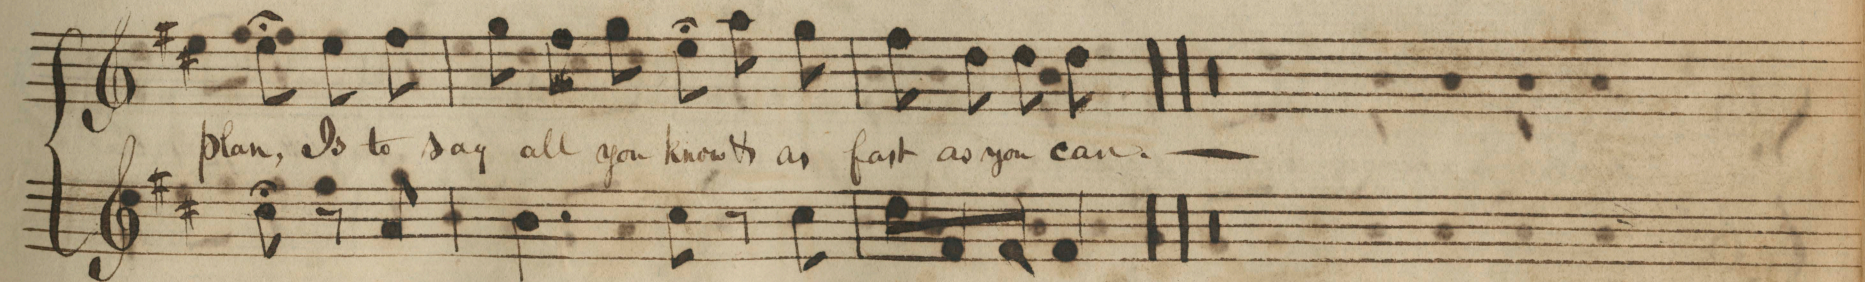 plan, Is to say all you know & as fast as you can.